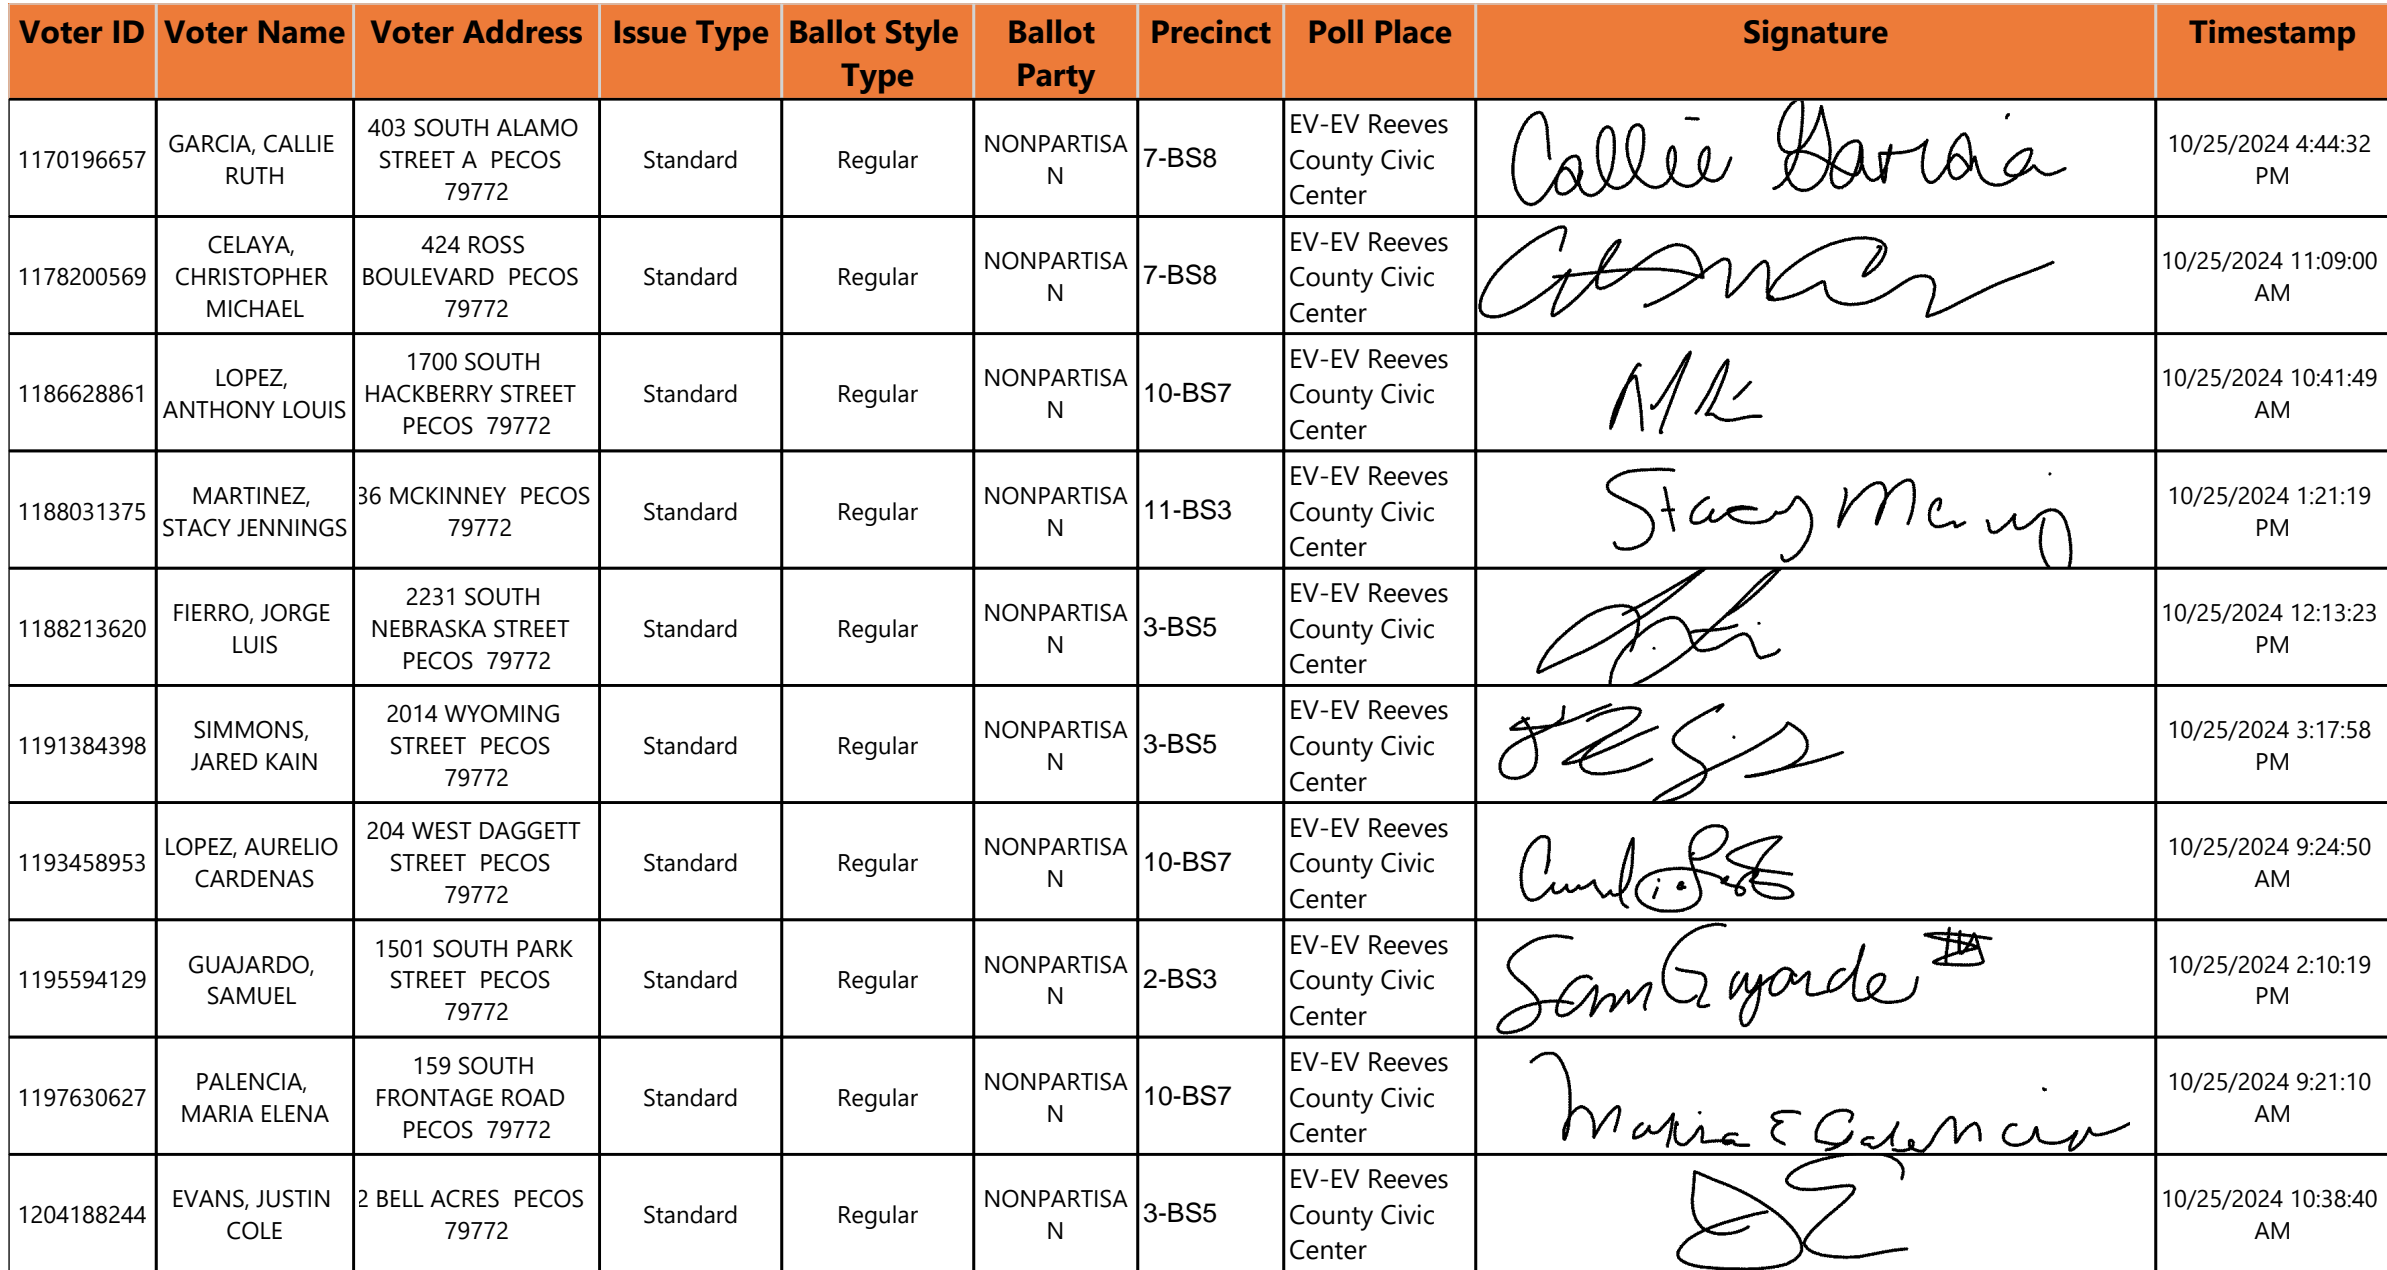 Voter ID Voter Name Voter Address Issue Type Ballot Style Type Ballot Party Precinct Poll Place Signature Timestamp
1170196657 GARCIA, CALLIE RUTH 403 SOUTH ALAMO STREET A PECOS 79772 Standard Regular NONPARTISAN 7-BS8 EV-EV Reeves County Civic Center Callie Garcia 10/25/2024 4:44:32 PM
1178200569 CELAYA, CHRISTOPHER MICHAEL 424 ROSS BOULEVARD PECOS 79772 Standard Regular NONPARTISAN 7-BS8 EV-EV Reeves County Civic Center 10/25/2024 11:09:00 AM
1186628861 LOPEZ, ANTHONY LOUIS 1700 SOUTH HACKBERRY STREET PECOS 79772 Standard Regular NONPARTISAN 10-BS7 EV-EV Reeves County Civic Center 10/25/2024 10:41:49 AM
1188031375 MARTINEZ, STACY JENNINGS 36 MCKINNEY PECOS 79772 Standard Regular NONPARTISAN 11-BS3 EV-EV Reeves County Civic Center Stacy 10/25/2024 1:21:19 PM
1188213620 FIERRO, JORGE LUIS 2231 SOUTH NEBRASKA STREET PECOS 79772 Standard Regular NONPARTISAN 3-BS5 EV-EV Reeves County Civic Center 10/25/2024 12:13:23 PM
1191384398 SIMMONS, JARED KAIN 2014 WYOMING STREET PECOS 79772 Standard Regular NONPARTISAN 3-BS5 EV-EV Reeves County Civic Center 10/25/2024 3:17:58 PM
1193458953 LOPEZ, AURELIO CARDENAS 204 WEST DAGGETT STREET PECOS 79772 Standard Regular NONPARTISAN 10-BS7 EV-EV Reeves County Civic Center 10/25/2024 9:24:50 AM
1195594129 GUAJARDO, SAMUEL 1501 SOUTH PARK STREET PECOS 79772 Standard Regular NONPARTISAN 2-BS3 EV-EV Reeves County Civic Center Sam 10/25/2024 2:10:19 PM
1197630627 PALENCIA, MARIA ELENA 159 SOUTH FRONTAGE ROAD PECOS 79772 Standard Regular NONPARTISAN 10-BS7 EV-EV Reeves County Civic Center Maria E Palencia 10/25/2024 9:21:10 AM
1204188244 EVANS, JUSTIN COLE 2 BELL ACRES PECOS 79772 Standard Regular NONPARTISAN 3-BS5 EV-EV Reeves County Civic Center 10/25/2024 10:38:40 AM